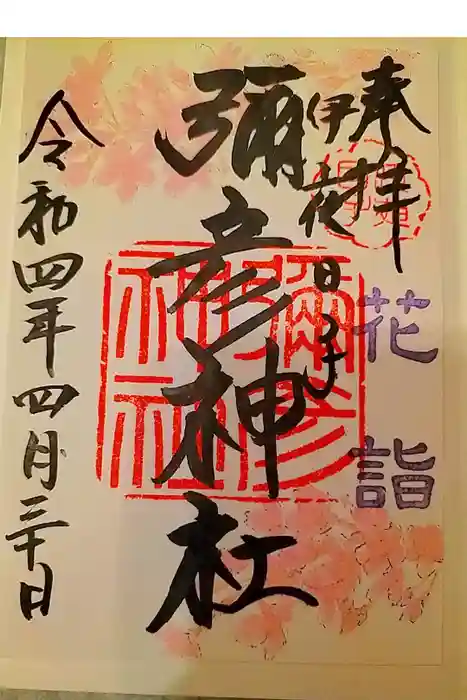 奉拝
花詣
伊花日子
彌彦神社
彌彦神社
令和四年四月三十日